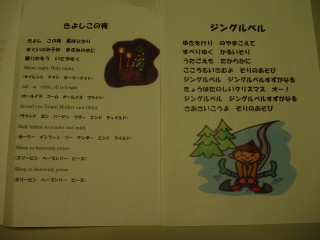 きよしこの夜
きよし　この夜　星はひかり
すくいのみ子は　まぶねの中に
眠りたもう　いとやすく
Silent night, Holy night
(サイレント　ナイト　ホーリーナイト)
All is calm, all is bright
(オールイズ　コーム　オールイズ　ブライト)
Round yon Virgin Mother and Child
(ラウンド　ヨン　バージン　マザー　エンド　チャイルド)
Holy infant so tender and mild,
(ホーリー　インファント　ソー　テンダー　エンド　マイルド)
Sleep in heavenly peace
(スリーピン　ヘーヴンリー　ピース)
Sleep in heavenly peace
(スリーピン　ヘーヴンリー　ピース)
ジングルベル
ゆきをけり　のやまこえて
すべりゆく　かるいそり
うたごえも　たからかに
こころもいさむよ　そりのあそび
ジングルベル　ジングルベルすずがなる
きょうはたのしいクリスマス　オー！
ジングルベル　ジングルベルすずがなる
さあさいこうよ　そりのあそび